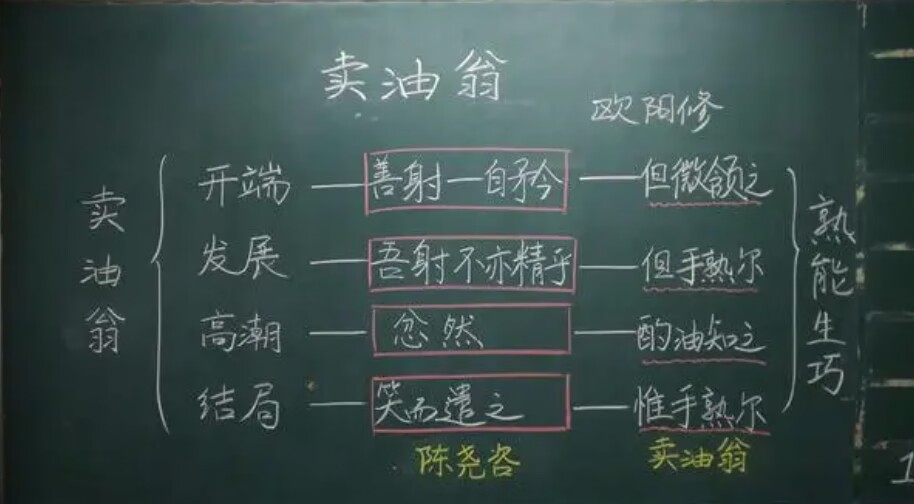 卖油翁
欧阳修
卖油翁
开端 — 善射—自矜 — 但微颔之
发展 — 吾射不亦精乎 — 但手熟尔
高潮 — 忿然 — 酌油知之
结局 — 笑而遣之 — 惟手熟尔
熟能生巧
陈尧咨 卖油翁
1